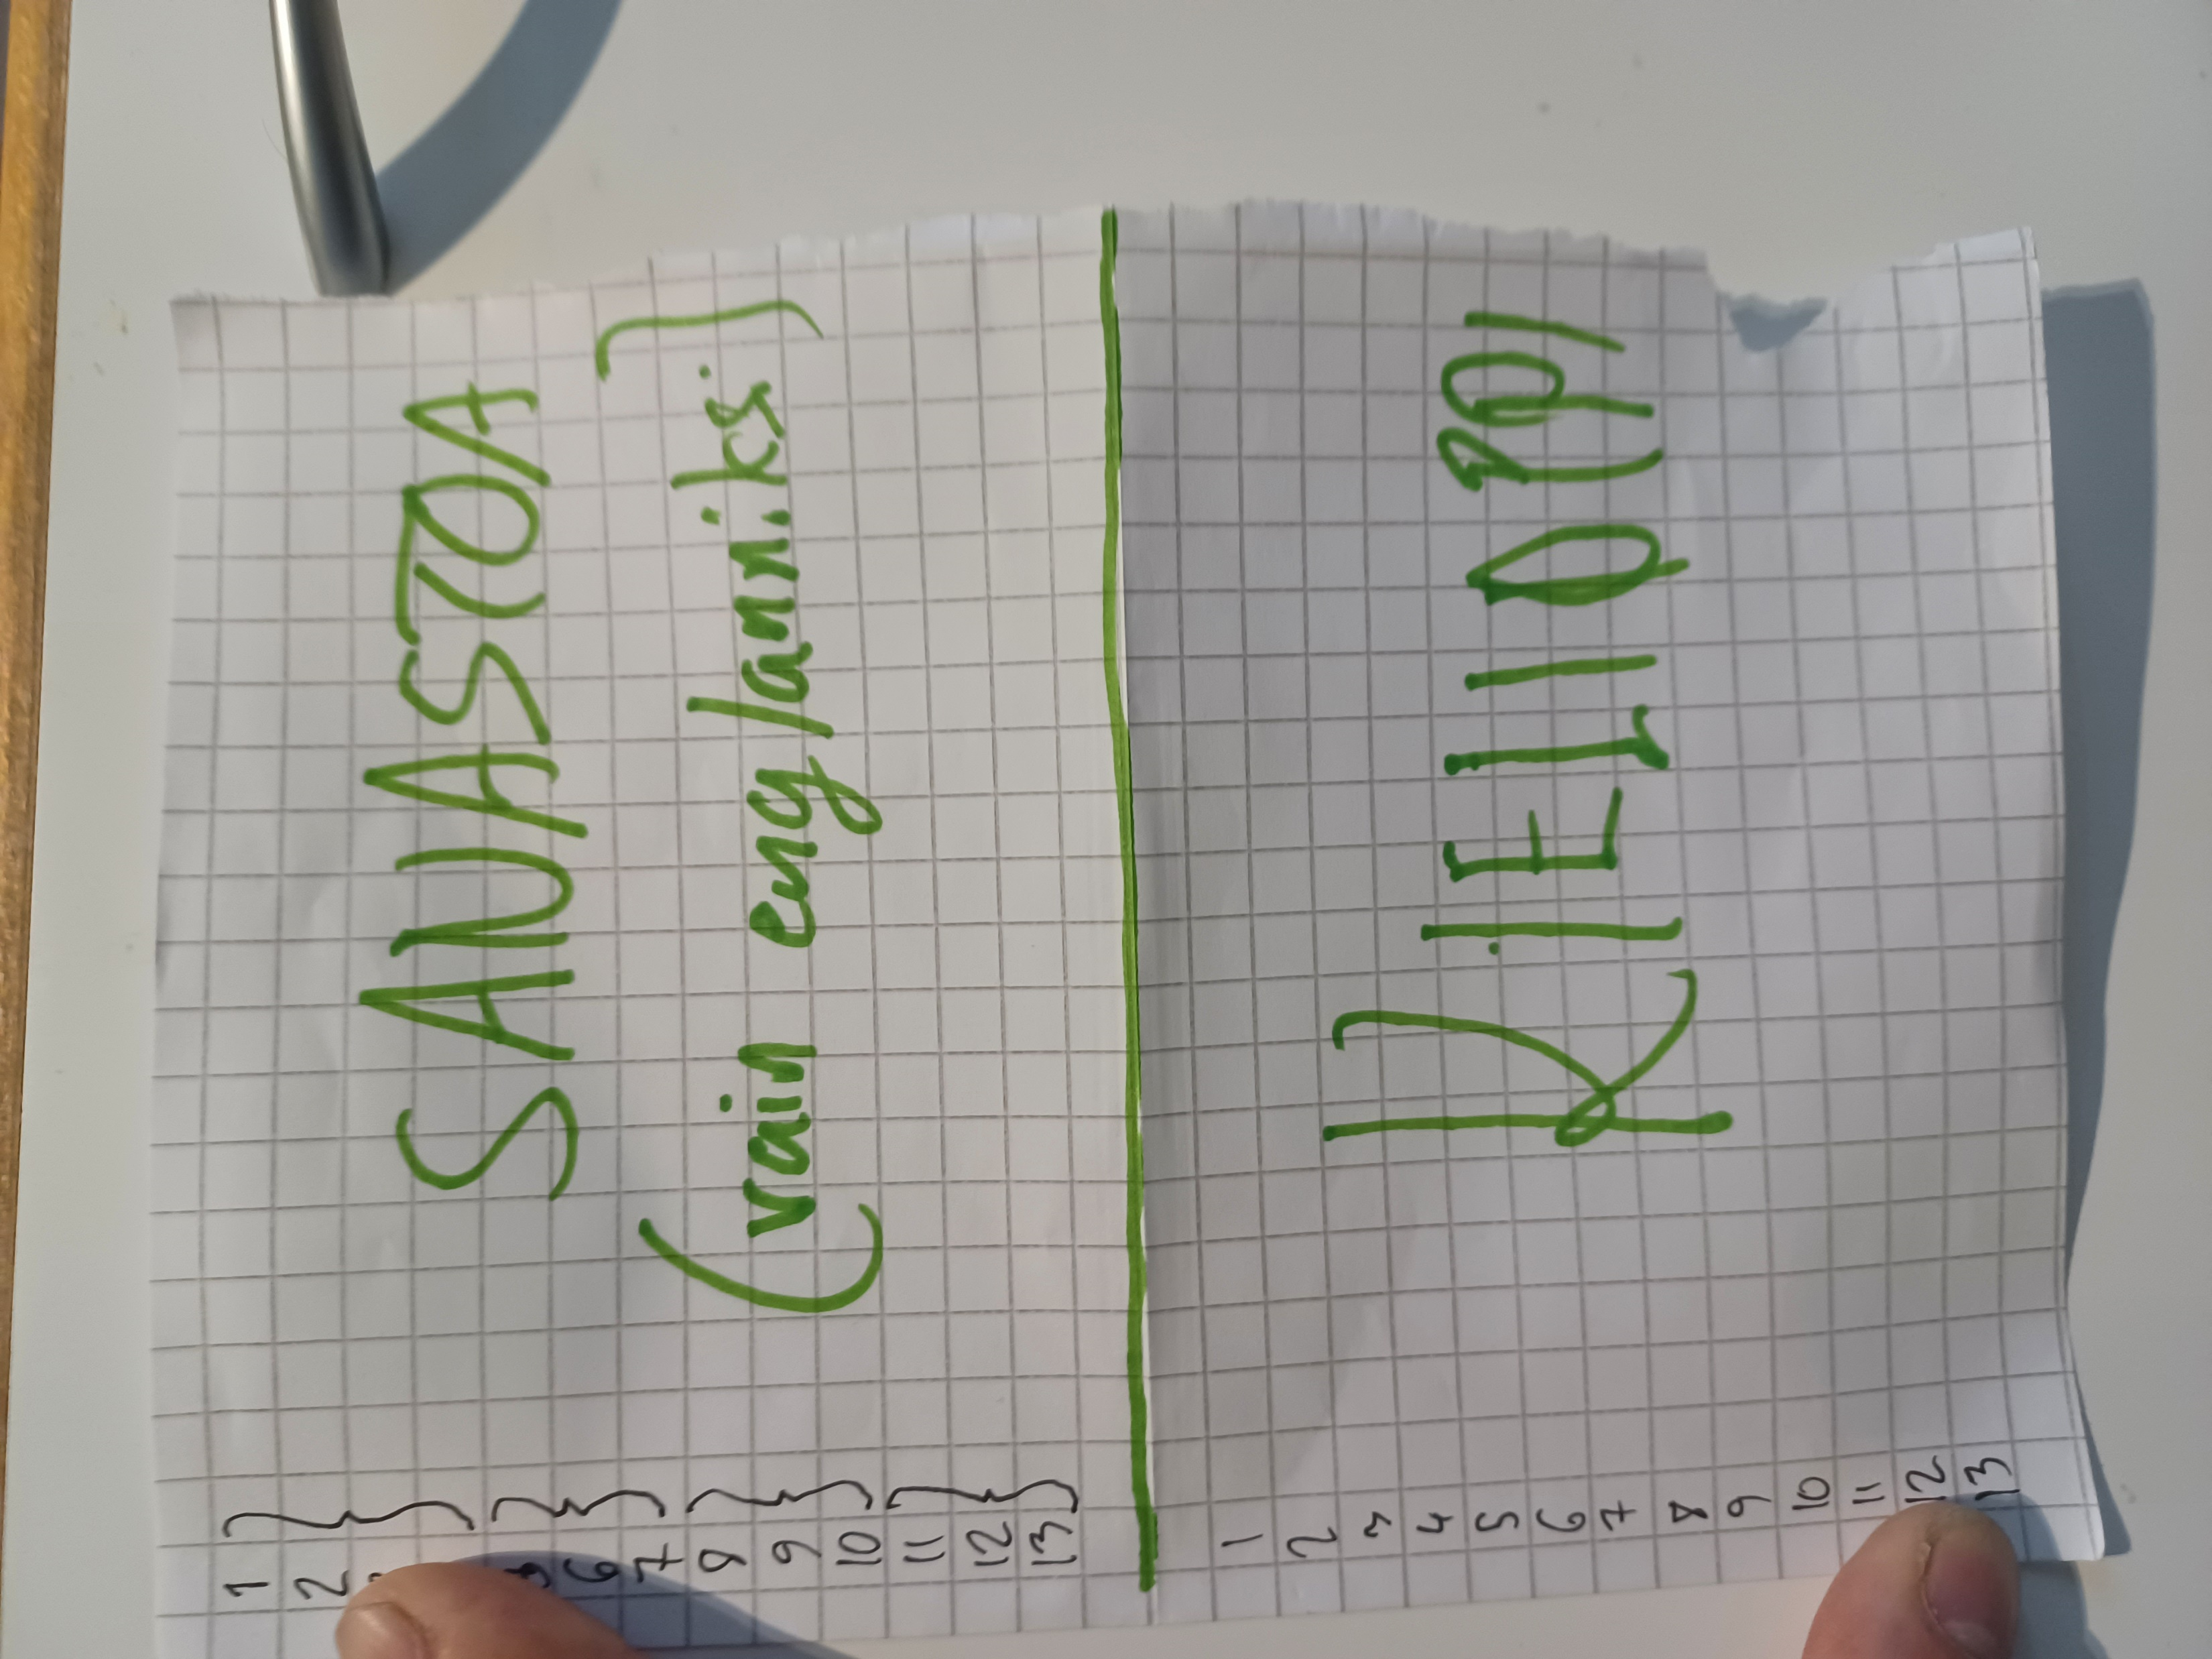 SANASTOA
(vain englanniksi)
1
2
5
6
7
8
9
10
11
12
13
KIELIOPPI
1
2
3
4
5
6
7
8
9
10
11
12
13